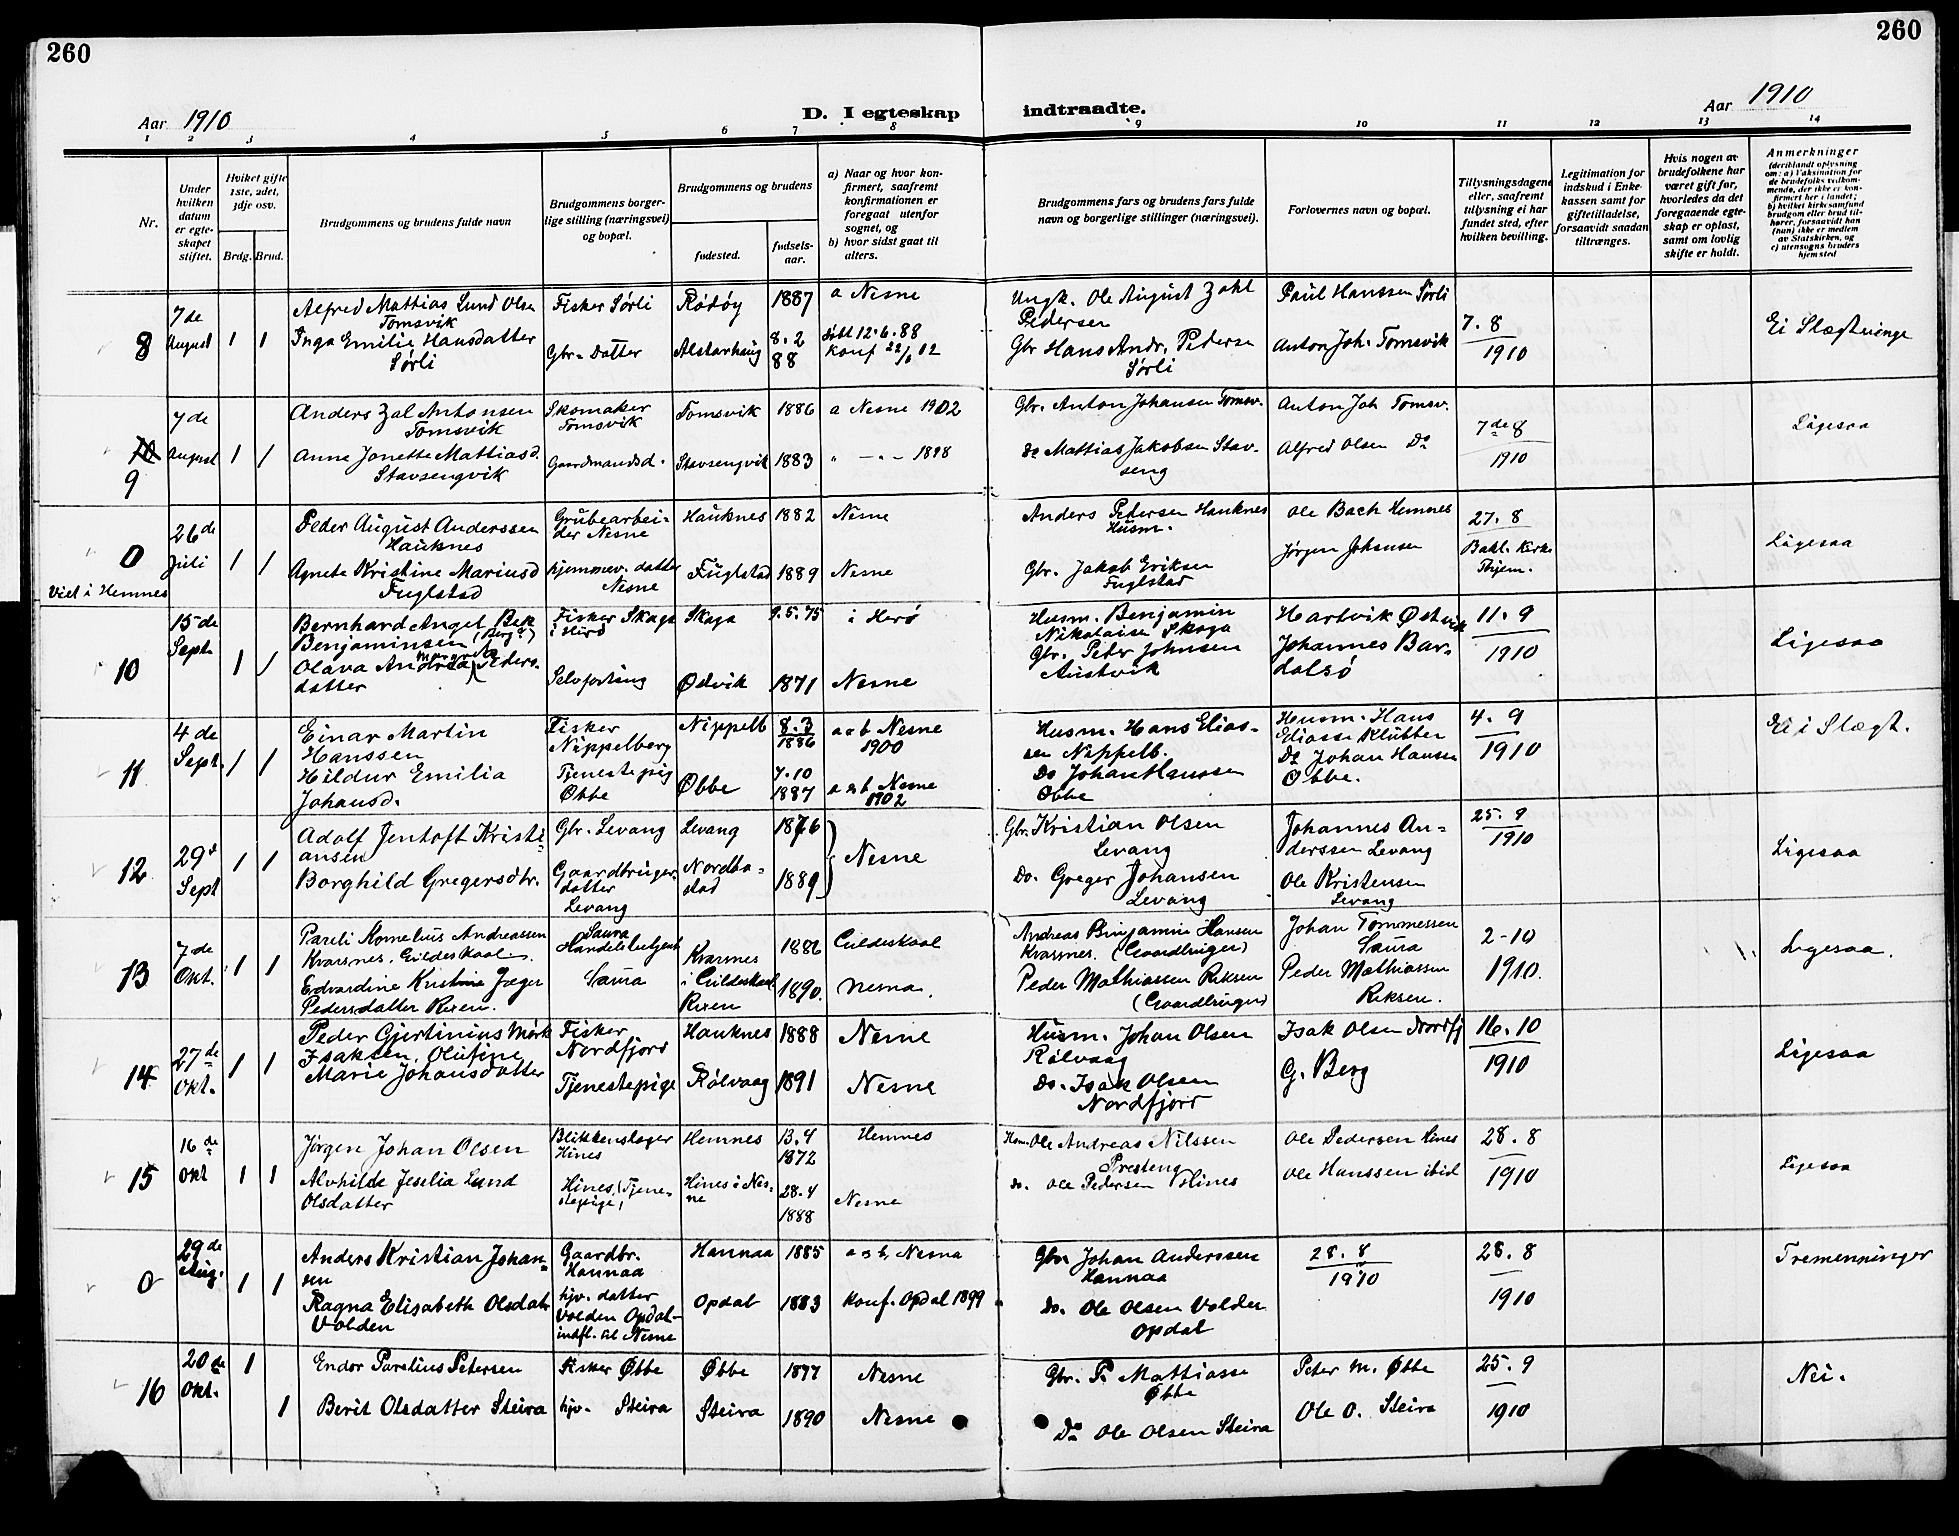 260
260
Aar 1910
D. I egteskap indtraadte.
Aar 1910
1 2 3 4 5 6 7 8 9 10 11 12 13 14
Nr.
Under hvilken datum er egteskapet stiftet.
Hvilket gifte 1ste, 2det, 3dje osv.
Brdg. Brud.
Brudgommens og brudens fulde navn
Brudgommens borgerlige stilling (næringsvei) og bopæl.
Brudgommens og brudens
fødested.
fødselsaar.
a) Naar og hvor konfirmert, saafremt konfirmationen er foregaat utenfor sognet, og
b) hvor sidst gaat til alters.
Brudgommens fars og brudens fars fulde navn og borgerlige stillinger (næringsvei).
Forlovernes navn og bopæl.
Tillysningsdagene eller, saafremt tillysning ei har fundet sted, efter hvilken bevilling.
Legitimation for indskud i Enkekassen samt for giftetilladelse, forsaavidt saadan tiltrænges.
Hvis nogen av brudefolkene har været gift før, hvorledes da det foregaaende egteskap er opløst, samt om lovlig skifte er holdt.
Anmerkninger
8
7de August
1 1
Alfred Mattias Lund Olsen
Tomsvik
Inga Emilie Hansdatter
Sørli
Fisker Sørli
Gbr-Datter
Rødøy
Alstarhaug
1887
8.2
88
a Nesne
født 12.6.88
Ungk. Ole August Zahl
Pedersen
Gbr Hans Andr. Pederse
Sørli
Paul Hanssen Sørli
Anton Joh. Tomsvik
7.8
1910
Ei Slægtninge
9
7de August
1 1
Anders Zal Antonsen
Tomsvik
Anne Jonette Mattiasd.
Stavsengvik
Skomaker
Tomsvik
Gaardmandsd.
Tomsvik
Stavsengvik
1886
1883
a Nesne 1902
" -"- 1898
Gbr. Anton Johansen Tomsv.
Do Mattias Jakobsen Stavseng
Anton Joh Tomsv.
Alfred Olsen Do
7de 8
1910
Ligesaa
0
Viet i Hemnes
26de Juli
1 1
Peder August Anderssen
Hauknes
Agnete Kristine Mariusd
Fuglstad
Grubearbeider Nesne
hjemmev. datter
Nesne
Hauknes
Fuglstad
1882
1889
Nesne
Nesne
Anders Petersen Hauknes
Husm.
Gbr. Jakob Eriksen
Fuglstad
Ole Bach Hemnes
Jørgen Johansen
27.8
Ligesaa
10
15de Sept.
1 1
Bernhard Angel Bek
Benjaminsen
Olava Andrea Pedersdatter
Fisker Skaga
i Herø
Selvforsørg
Skaga
Østvik
9.5.75
1871
i Herø
Nesne
Husm. Benjamin
Nikolaisen Skaga
Gbr. Peder Johnsen
Austvik
Hartvik Østvik
Johannes Bardalsø
11.9
1910
Ligesaa
11
4de Sept.
1 1
Einar Martin
Hanssen
Hildur Emilia
Johansd.
Fisker
Nippelberg
Tjenestepig
Øbbe
Nippelb
Øbbe
8.3
1886
7.10
1887
a o b Nesne
1900
a o b Nesne
1902
Husm. Hans Eliassen Nippelb.
Do Johan Hanssen
Øbbe
Husm. Hans
Eliasse Klubben
Do Johan Hansen
Øbbe.
4.9
1910
Ei i Slægt.
12
29d Sept
1 1
Adolf Jentoft Kristiansen
Borghild Gregersdtr.
Gbr. Levang
Gaardbruger datter
Levang
Levang
Nordbostad
1876
1889
Nesne
Gbr. Kristian Olsen
Levang
Do. Greger Johansen
Levang
Johannes Anderssen Levang
Ole Kristensen
Levang
25.9
1910
Ligesaa
13
7de Okt.
1 1
Pareli Kornelius Andreassen
Kvarsnes, Gildeskaal.
Edvardine Kristine Jæger
Pedersdatter Rexen.
Saura
Handelsbetjent
Saura
Kvarsnes
i Gildeskaal
Rexen
1886
1890.
Gildeskaal
Nesna.
Andreas Binjamin Hansen
Kvarsnes. (Gaardbruger)
Peder Mathiassen Reksen
(Gaardbruger)
Johan Tommessen
Saura
Peder Mathiassen
Reksen.
2-10
1910.
Ligesaa.
14
27de Okt.
1 1
Peder Gjertinius Mørk
Isaksen. Olufine
Marie Johansdatter
Fisker
Nordfjord
Tjenestepige
Hauknes
Rølvaag
1888
1891
Nesne
Nesne
Husm. Johan Olsen
Rølvaag
Do. Isak Olsen
Nordfjord
Isak Olsen Nordfj
G. Berg
16.10
1910
Ligesaa
15
16de Okt
1 1
Jørgen Johan Olsen
Alvhilde Jeselia Lund
Olsdatter
Blikkenslager
Hines
Hines, (Tjenestepige)
Hemnes
Hines i Nesne
13.4
1872
28.4
1888
Hemnes
Nesne
Ole Andreas Nilssen
Presteng
do. Ole Pedersen Hines
Ole Pedersen Hines
Ole Hanssen ibid
28.8
1910
Ligesaa
0
29de Aug.
1 1
Anders Kristian Johansen
Ragna Elisabeth Olsdatr
Volden
Gaardbr.
Hannaa
hjv. datter
Volden Opdal
indfl. til Nesne
Hannaa
Opdal
1885
1883
a o b, Nesna
Konf. Opdal 1899
Gbr Johan Anderssen
Hannaa
Do. Ole Olsen Volden
Opdal
28.8
1910
28.8
1910
Tremenninger
16
20de Okt.
1
1
Endor Parelius Petersen
Berit Olsdatter Steira
Fisker Øbbe
hjv. Steira
Øbbe
Steira
1877
1890
Nesne
Nesne
Gbr. P. Mattiasse
Øbbe
Do Ole Olsen Steira
Peter M. Øbbe
Ole O. Steira
25.9
1910
Nei.